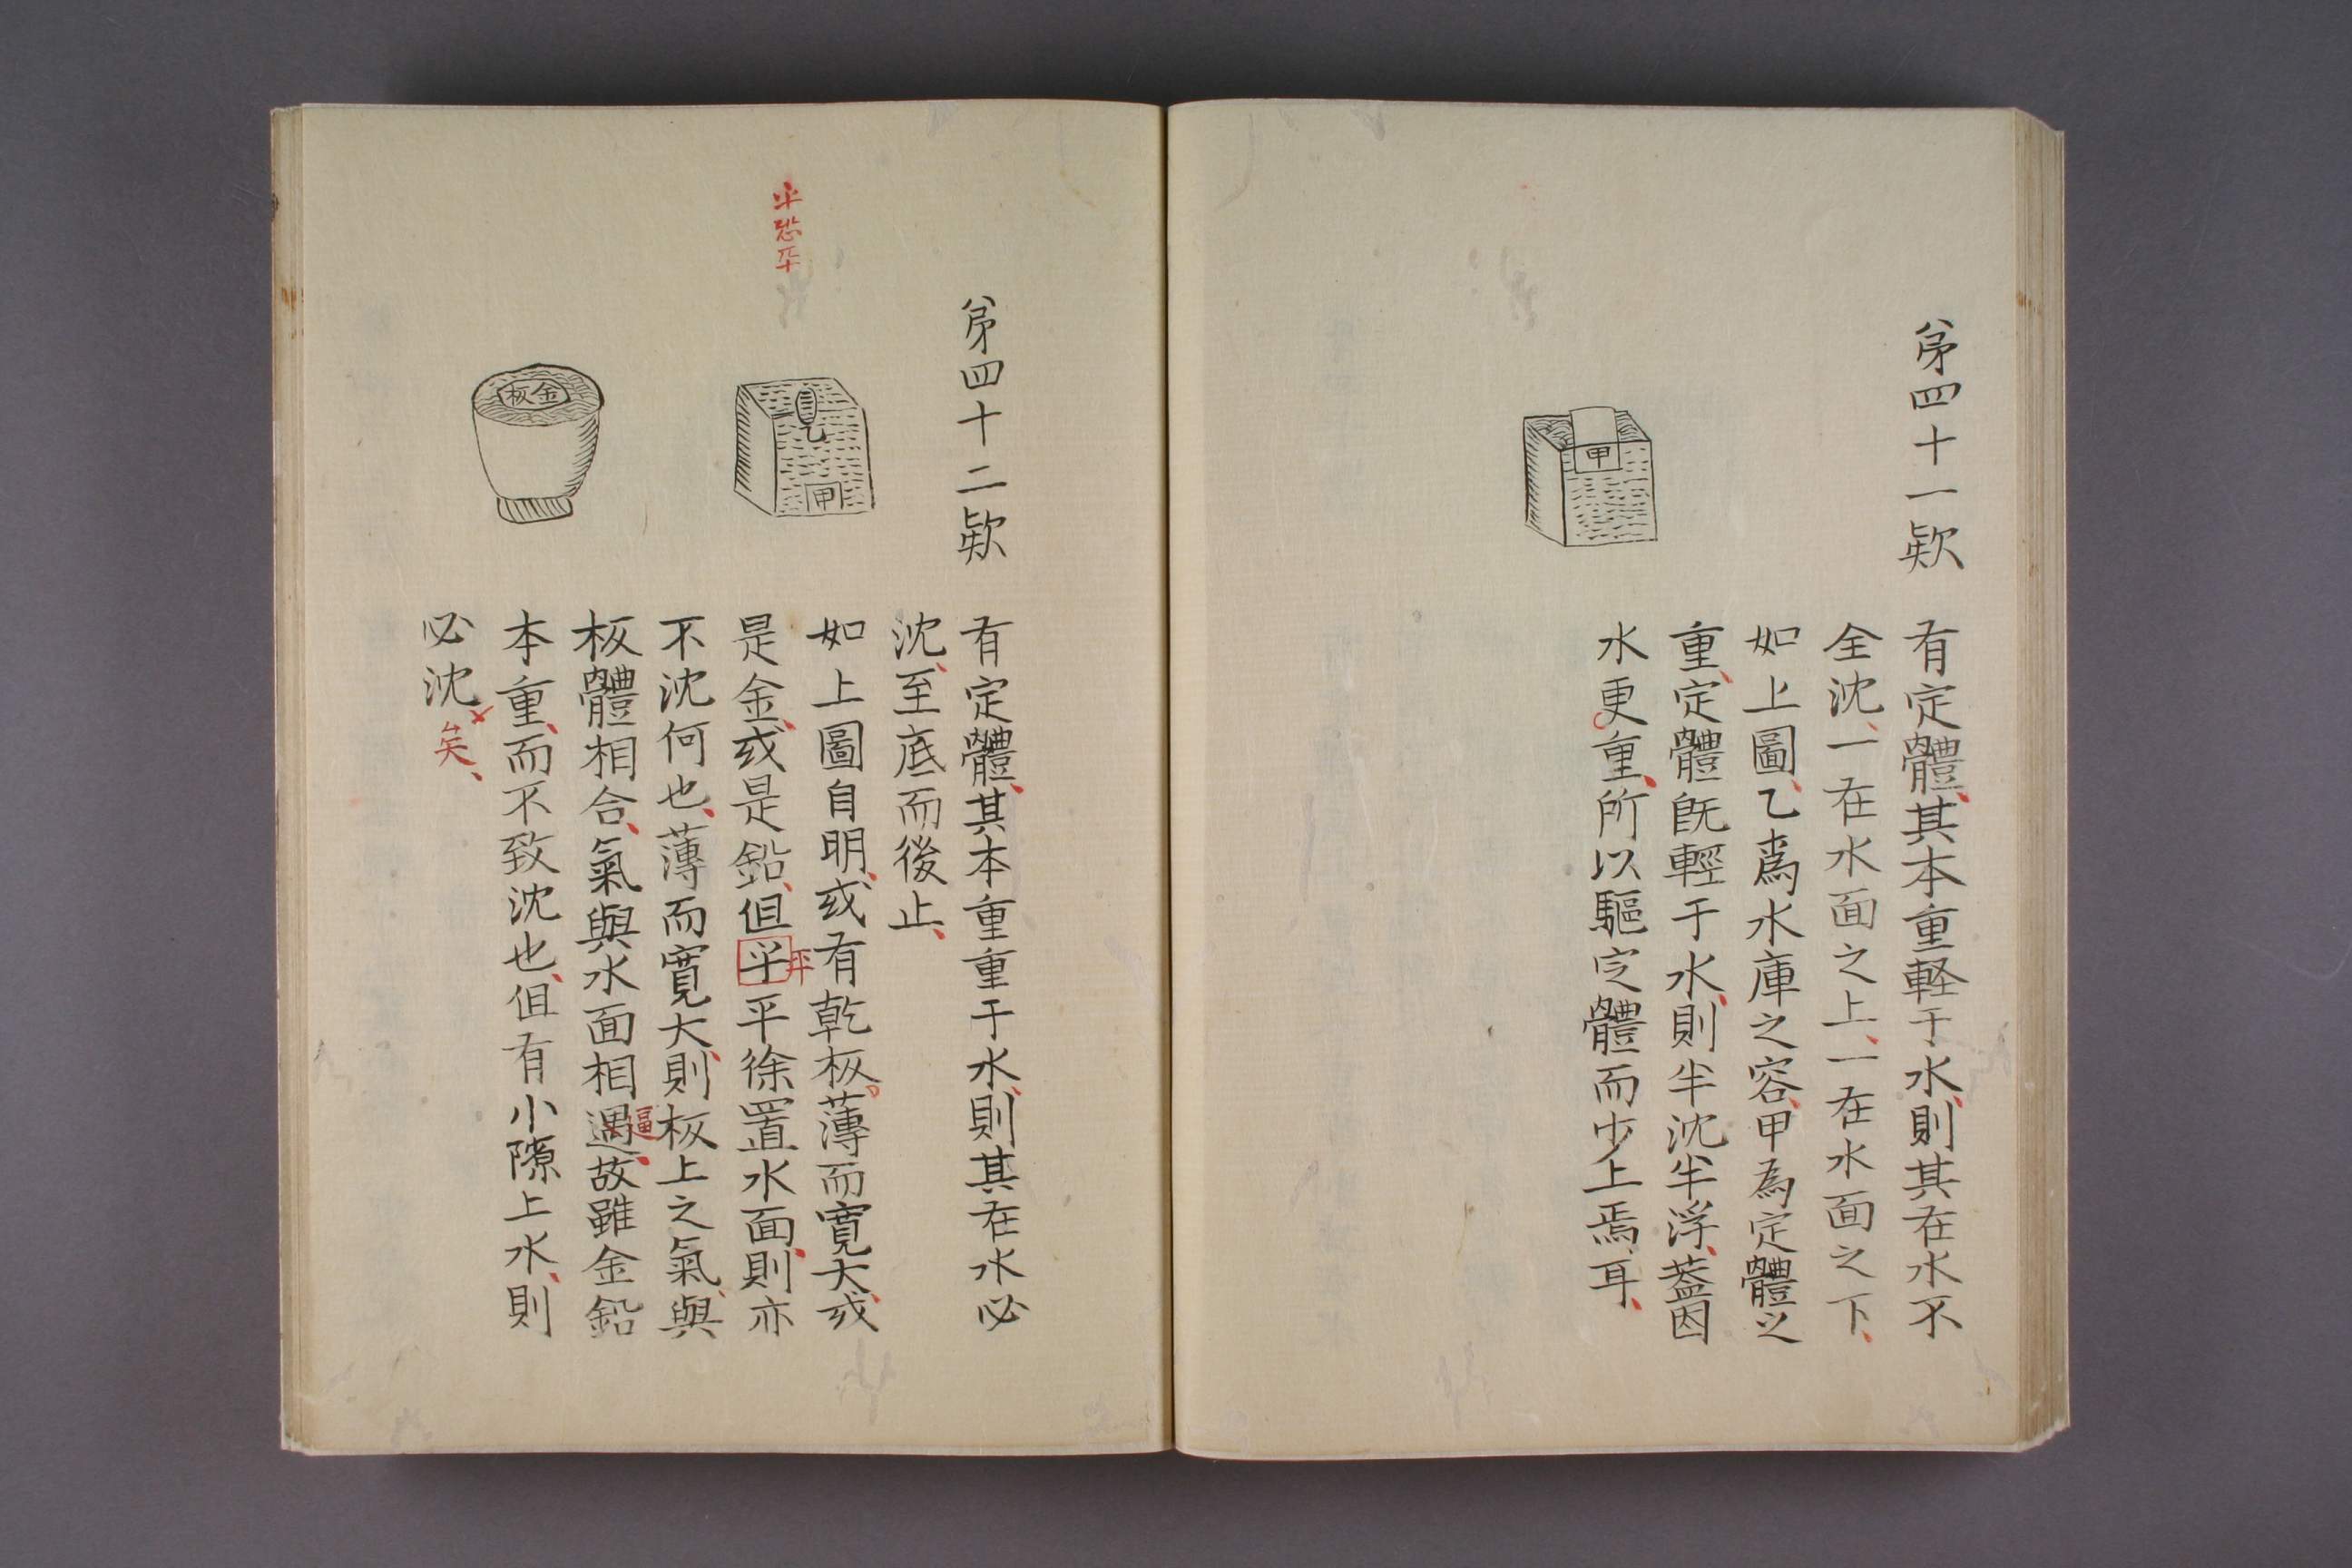 第四十一欵
甲
有定體其本重軽于水則其在水不
全沈一在水面之上一在水面之下
如上圖乙爲水庫之容甲為定體之
重定體既輕于水則半沈半浮葢因
水更重所以驅定體而少上焉耳
第四十二欵
半恐平
乙
甲
金板
有定體其本重重于水則其在水必
沈至底而後止
如上圖自明或有乾板薄而寬大或
是金或是鉛但半平徐置水面則亦
平
不沈何也薄而寬大則板上之氣與
板體相合氣與水面相遇故雖金鉛
逼
本重而不致沈也但有小隙上水則
必沈
矣